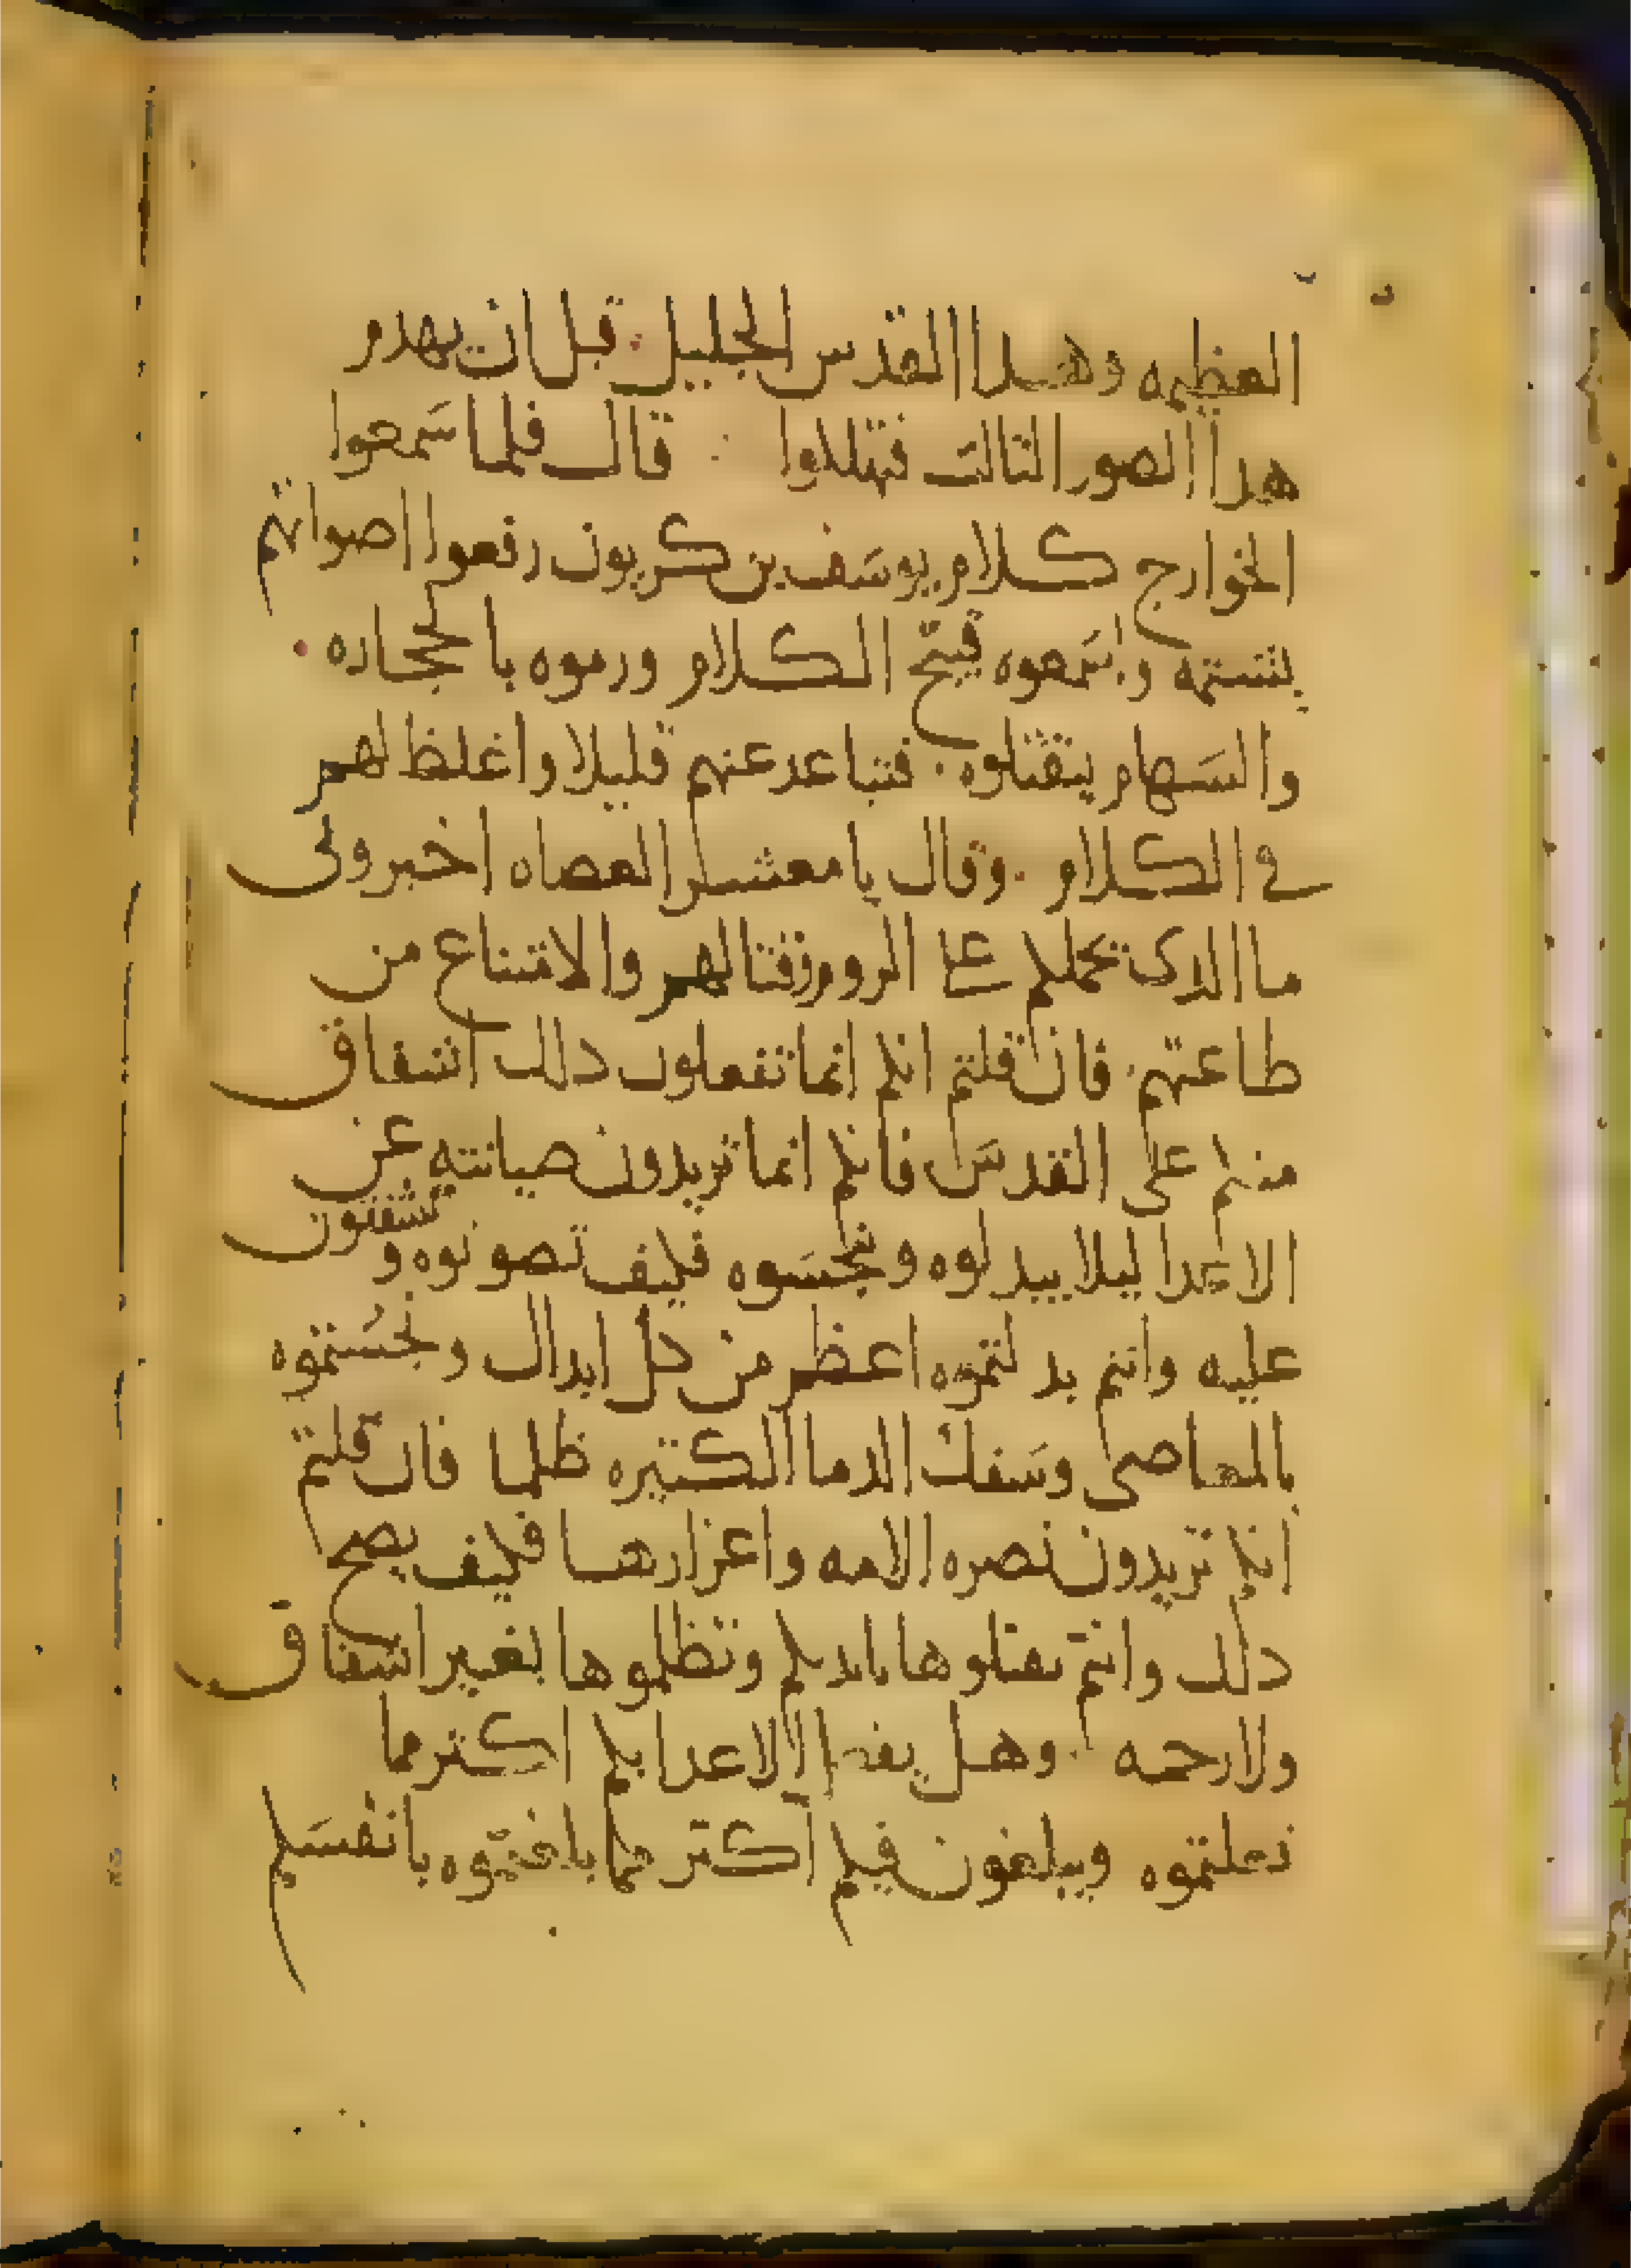 العظيمه وهدا القدس الجليل قبل ان يهدم
هدا الصور التالت فتهلكوا قال فلما سَمعوا
الخوارج كلام يوسَف بن كريون رفعوا اصواتهم
بشتمه واسَمعوه قبيح الكلام ورموه بالحجاره
والسَهام ليقتلوه فتباعد عنهم قليلا واغلظ لهم
في الكلام وقال يا معشر العصاه اخبرونى
ما الدى يحملكم على الروم وقتالهم والامتناع من
طاعتهم فان قلتم انكم انما تفعلون دلك اشفاق
منكم على القدسَ فانكم انما تريدون صيانته عن
الاعدا ليلا يبدلوه وينجسَوه فكيف تصونوه وتشفقون
عليه وانتم بدلتموه اعظم من كل ابدال ونجسَتموه
بالمعاصى وسَفك الدما الكتيره ظلما فان قلتم
انكم تريدون نصره الامه واعزازها فكيف يصح
دلك وانتم تقتلوها بايديكم وتظلموها بغير اشفاق
ولا رحمه وهل الاعدا بكم اكتر مما
فعلتموه ويبلغون فيكم اكتر مما بلغتموه بانفسَكم